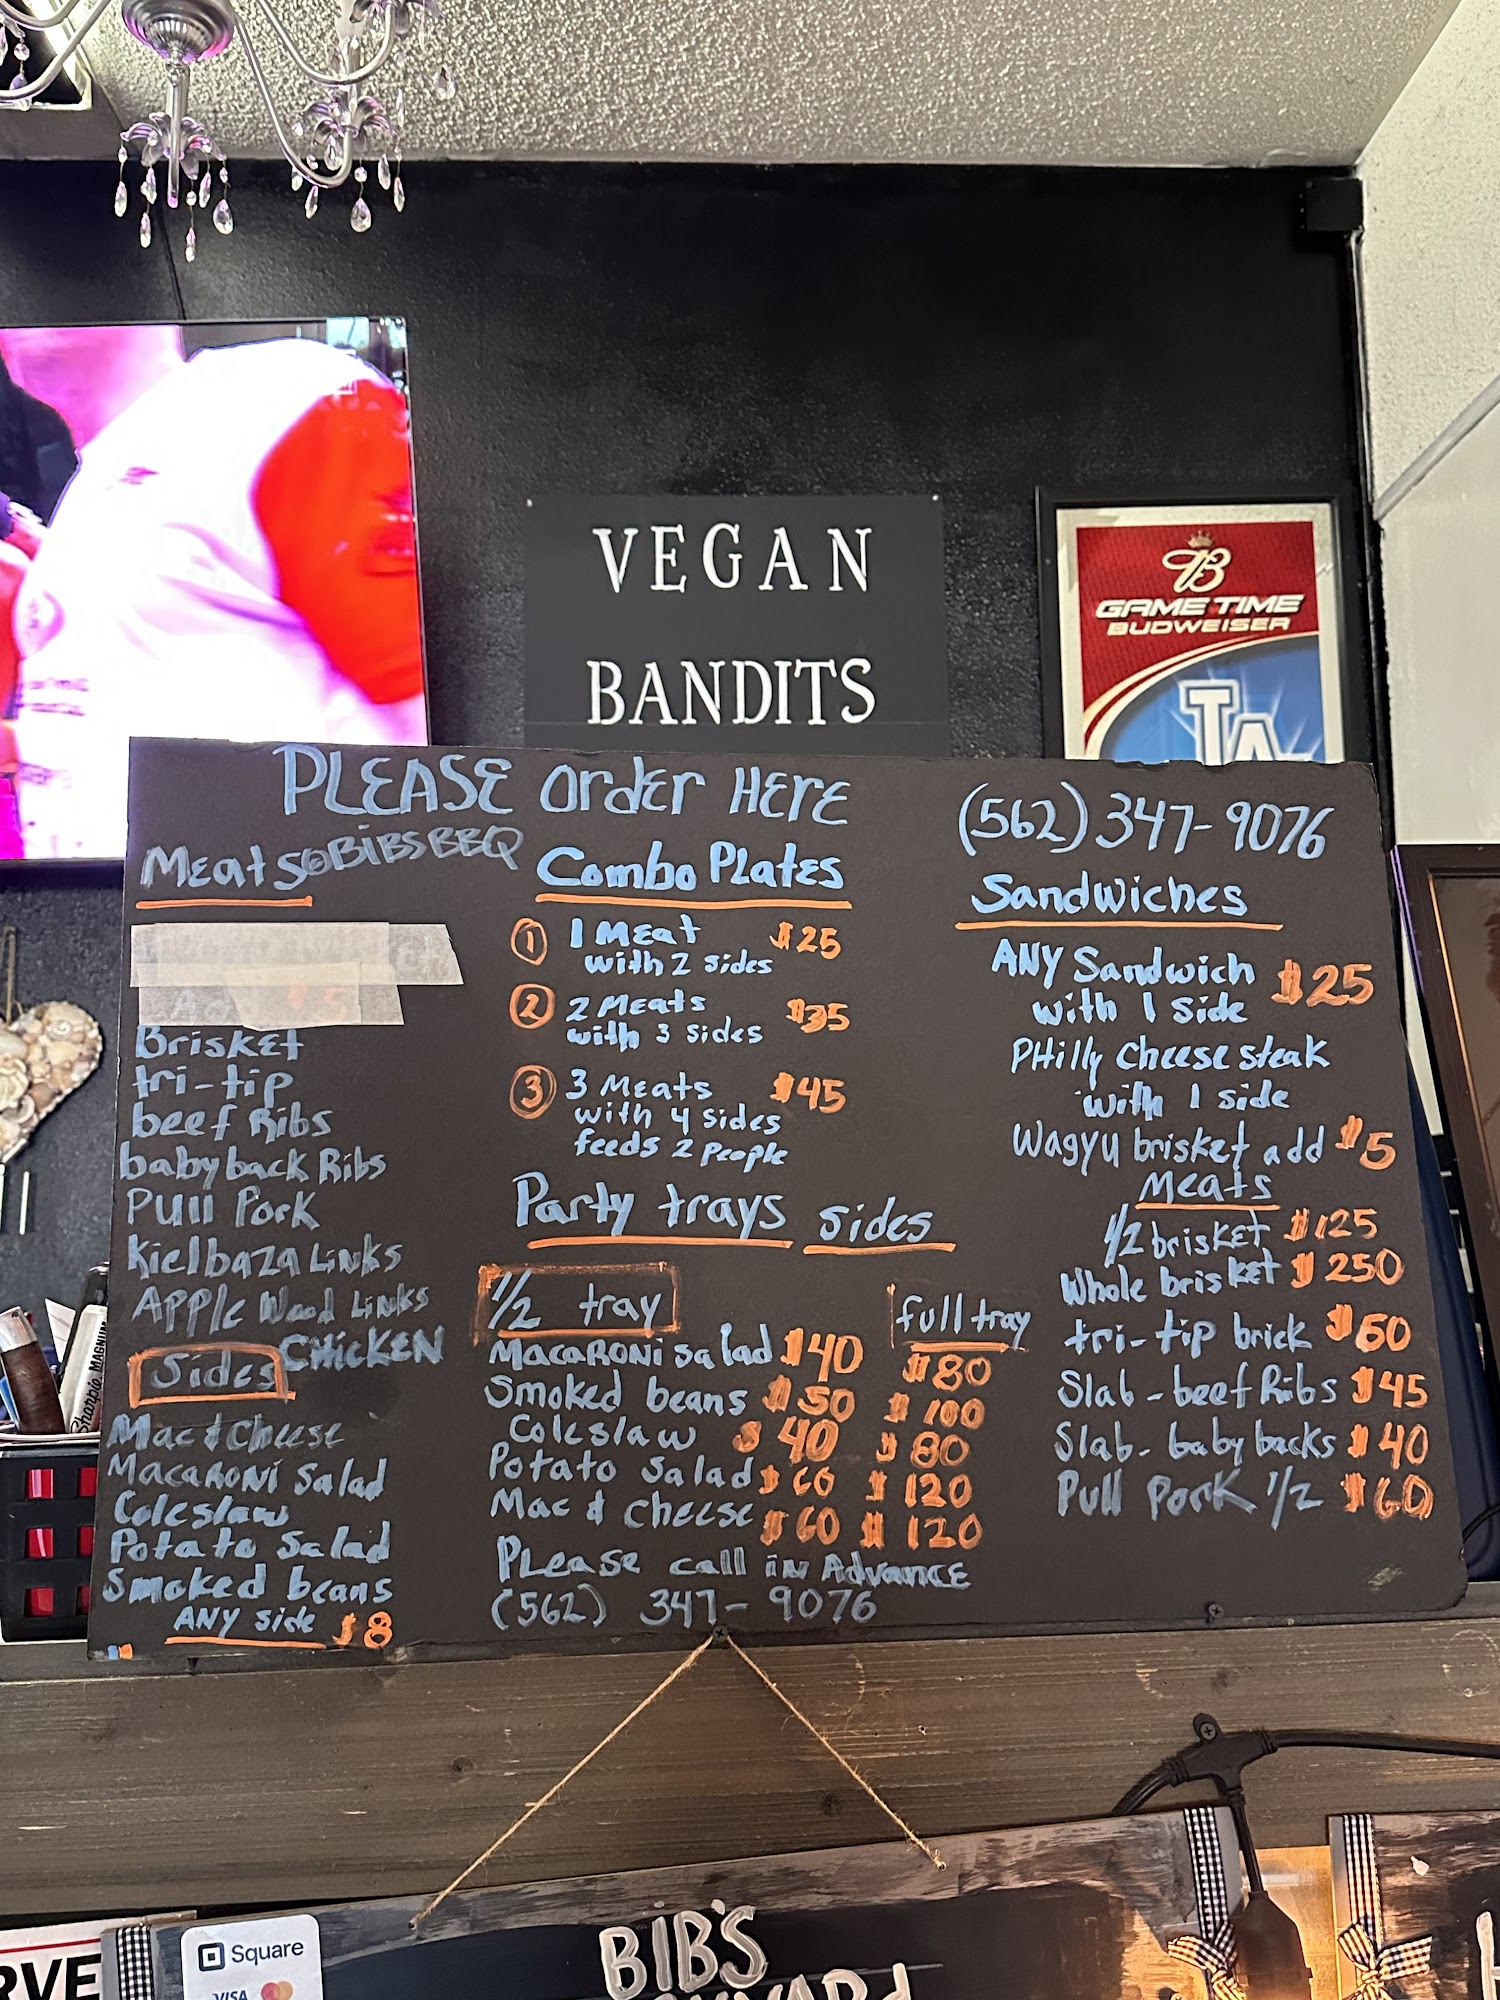 VEGAN
BANDITS
GAME TIME
BUDWEISER
LA
PLEASE Order HERE
(562) 347-9076
Meats @BiBSBBQ
Brisket
tri-tip
beef Ribs
baby back Ribs
PUll Pork
Kielbaza Links
Apple Wood Links
CHICKEN
Sides
Mac & Cheese
Macaroni Salad
Coleslaw
Potato Salad
Smoked beans
ANY side $8
Combo Plates
1 1 Meat $25
with 2 sides
2 2 Meats $35
with 3 sides
3 3 Meats $45
with 4 sides
feeds 2 People
Party trays sides
1/2 tray full tray
Macaroni salad $40 $80
Smoked beans $50 $100
Coleslaw $40 $80
Potato Salad $60 $120
Mac & Cheese $60 $120
Please call in Advance
(562) 347-9076
Sandwiches
ANY Sandwich $25
with 1 Side
PHilly Cheese steak
with 1 side
Wagyu brisket add $5
Meats
1/2 brisket $125
Whole brisket $250
tri-tip brick $60
Slab-beef Ribs $45
Slab-baby backs $40
Pull Pork 1/2 $60
Sharpie MAGNUM
Square
VISA
BIB'S